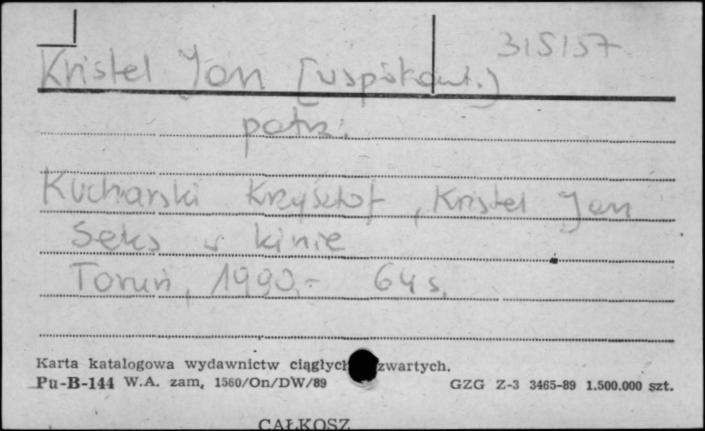 315157
Kristel Jan [współaut.]
patrz:
Kucharski Krzysztof, Kristel Jan
Seks w kinie
Toruń, 1990.- 64 s.
Karta katalogowa wydawnictw ciągłych zwartych.
Pu-B-144 W.A. zam, 1560/On/DW/89 GZG Z-3 3465-89 1.500.000 szt.
CAŁKOSZ